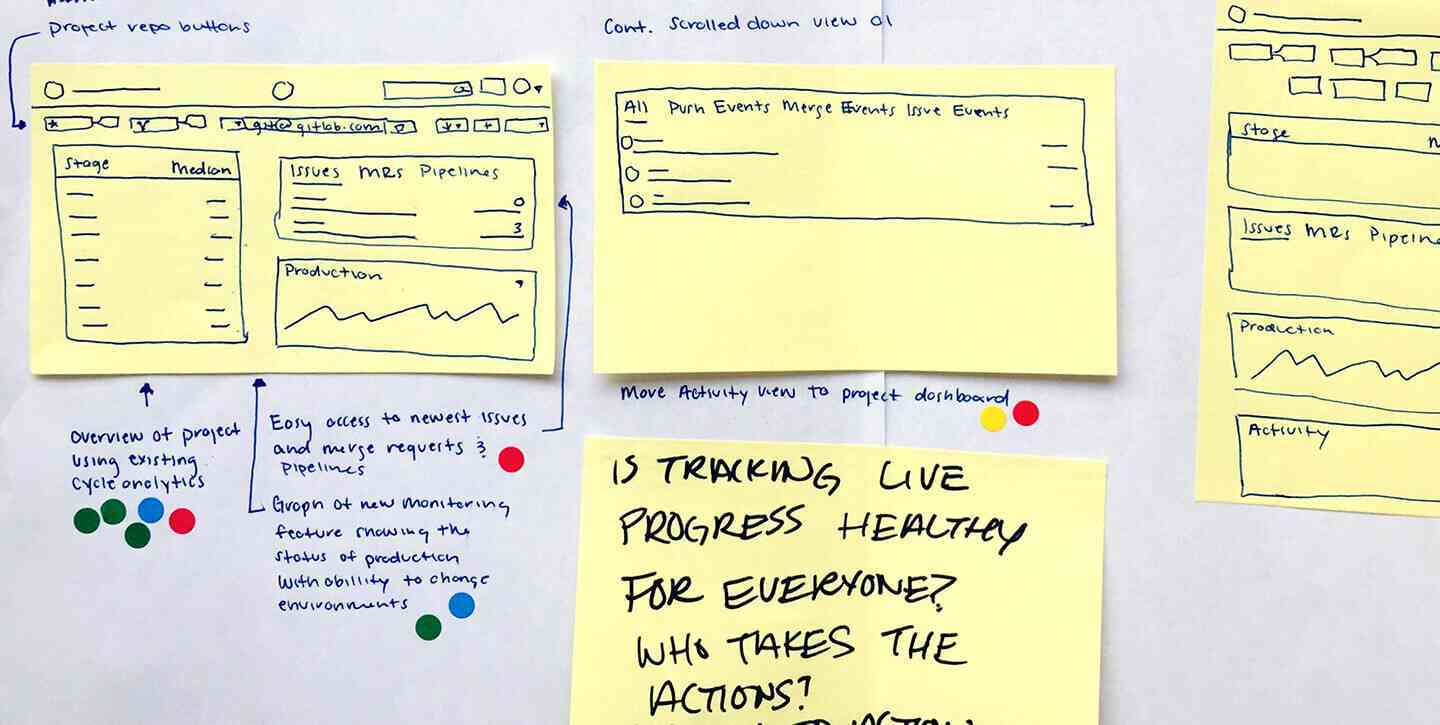 Project repo buttons
git@gitlab.com
Stage Median
Issues MRs Pipelines
0
3
Production
Overview of project
using existing
cycle analytics
Easy access to newest issues
and merge requests &
pipelines
Graph of new monitoring
feature showing the
status of production
with abillity to change
environments
Cont. Scrolled down view 01
All Push Events Merge Events Issue Events
Move Activity view to project dashboard
IS TRACKING LIVE
PROGRESS HEALTHY
FOR EVERYONE?
WHO TAKES THE
ACTIONS?
Stage
Issues MRs Pipeline
Production
Activity